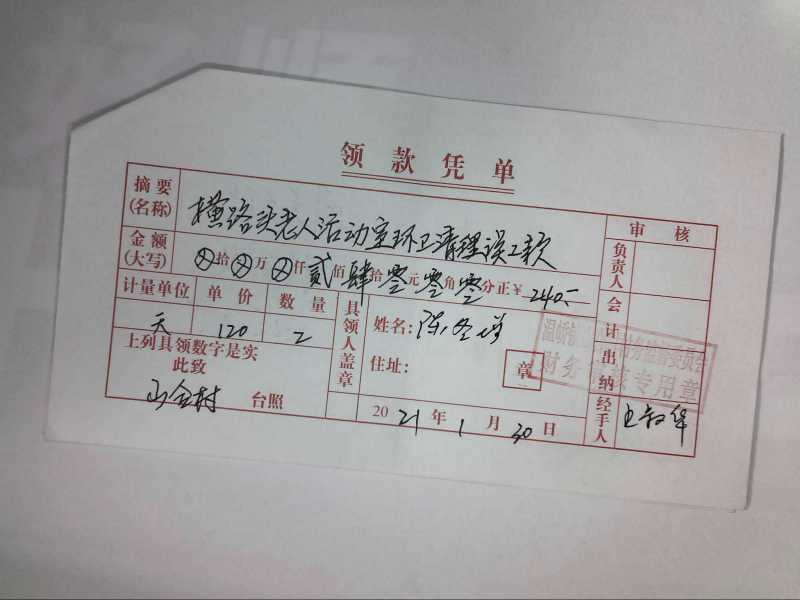 领款凭单
摘要(名称) 横路头老人活动室环卫清理误工款
审核
金额(大写) ⊗拾⊗万⊗仟贰佰肆拾零元零角零分正￥240.-
负责人
计量单位 单价 数量
天 120 2
具领人盖章
姓名:陈
住址:
章
会计
出纳
上列具领数字是实
此致
台照
2021年1月30日
经手人
财务审核专用章